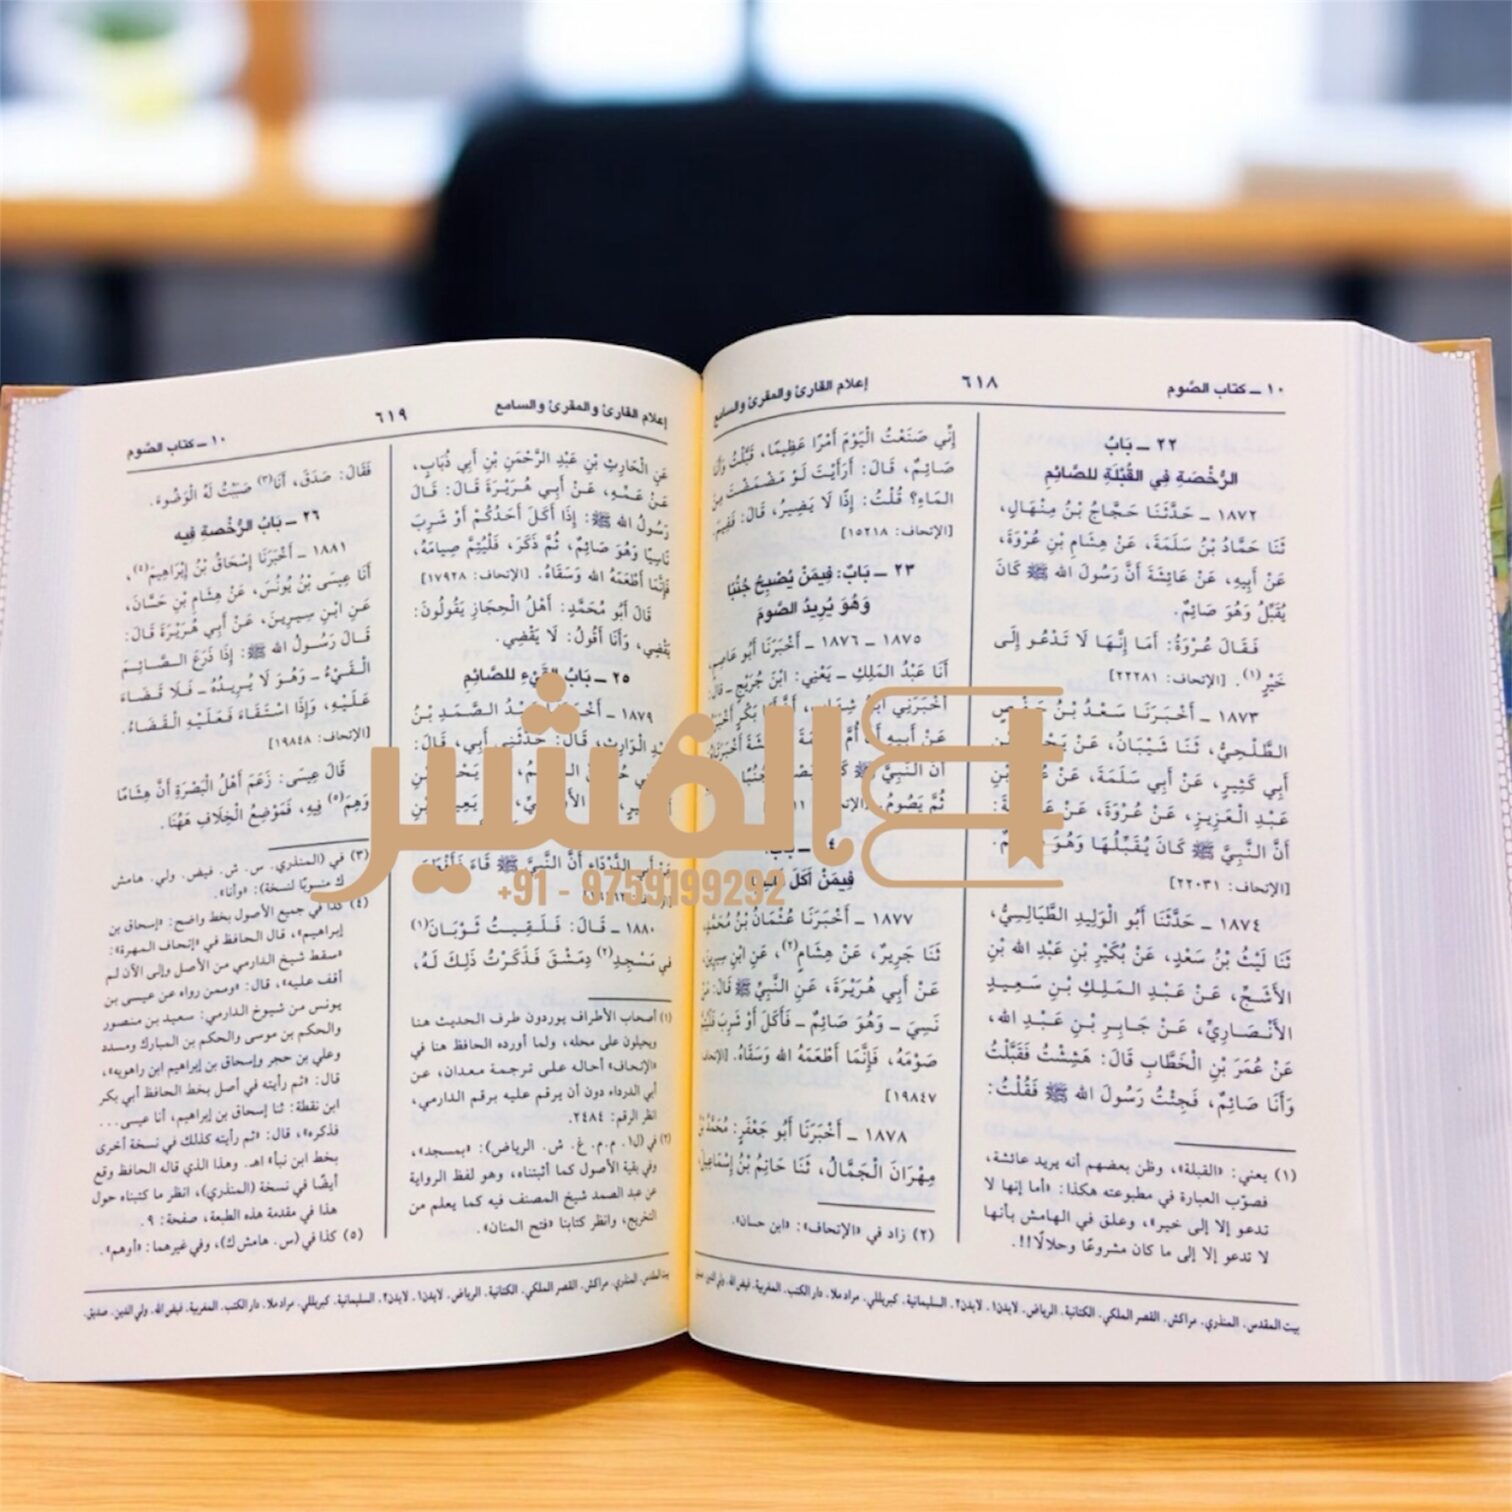 ١٠ ـ كتاب الصّوم
٦١٨
إعلام القارئ والمقرئ والسامع
٢٢ ـ بَابُ
الرُّخْصَةِ فِي القُبْلَةِ للصَّائِمِ
١٨٧٢ ـ حَدَّثَنَا حَجَّاجُ بْنُ مِنْهَالٍ،
ثَنَا حَمَّادُ بْنُ سَلَمَةَ، عَنْ هِشَامِ بْنِ عُرْوَةَ،
عَنْ أَبِيهِ، عَنْ عَائِشَةَ أَنَّ رَسُولَ الله ﷺ كَانَ
يُقَبِّلُ وَهُوَ صَائِمٌ.
فَقَالَ عُرْوَةُ: أَمَا إِنَّهَا لَا تَدْعُو إِلَى
خَيْرٍ(١). [الإتحاف: ٢٢٢٨١]
١٨٧٣ ـ أَخْبَرَنَا سَعْدُ بْنُ حَفْصٍ
الطَّلْحِيُّ، ثَنَا شَيْبَانُ، عَنْ
أَبِي كَثِيرٍ، عَنْ أَبِي سَلَمَةَ، عَنْ بْنِ
عَبْدِ الْعَزِيزِ، عَنْ عُرْوَةَ، عَنْ
أَنَّ النَّبِيَّ ﷺ كَانَ يُقَبِّلُهَا وَهُوَ
[الإتحاف: ٢٢٠٣١]
١٨٧٤ ـ حَدَّثَنَا أَبُو الْوَلِيدِ الطَّيَالِسِيُّ،
ثَنَا لَيْثُ بْنُ سَعْدٍ، عَنْ بُكَيْرِ بْنِ عَبْدِ الله بْنِ
الأَشَجِّ، عَنْ عَبْدِ الْمَلِكِ بْنِ سَعِيدٍ
الأَنْصَارِيِّ، عَنْ جَابِرِ بْنِ عَبْدِ الله،
عَنْ عُمَرَ بْنِ الْخَطَّابِ قَالَ: هَشِشْتُ فَقَبَّلْتُ
وَأَنَا صَائِمٌ، فَجِئْتُ رَسُولَ الله ﷺ فَقُلْتُ:
(١) يعني: «القبلة»، وظن بعضهم أنه يريد عائشة،
فصوّب العبارة في مطبوعته هكذا: «أما إنها لا
تدعو إلا إلى خير»، وعلق في الهامش بأنها
لا تدعو إلا إلى ما كان مشروعًا وحلالًا!!.
إِنِّي صَنَعْتُ الْيَوْمَ أَمْرًا عَظِيمًا، قَبَّلْتُ وَأَنَا
صَائِمٌ، قَالَ: أَرَأَيْتَ لَوْ مَضْمَضْتَ مِنَ
المَاءِ؟ قُلْتُ: إِذًا لَا يَضِيرُ، قَالَ: فَفِيمَ.
[الإتحاف: ١٥٢١٨]
٢٣ ـ بَابٌ: فِيمَنْ يُصْبِحُ جُنُبًا
وَهُوَ يُرِيدُ الصَّومَ
١٨٧٥ ـ ١٨٧٦ ـ أَخْبَرَنَا أَبُو عَاصِمٍ،
أَنَا عَبْدُ المَلِكِ ـ يَعْنِي: ابْنَ جُرَيْجٍ ـ قَالَ:
أَخْبَرَنِي ابْنُ شِهَابٍ، بَكْرٍ
عَنْ أَبِيهِ
أَنَّ النَّبِيَّ ﷺ
ثُمَّ يَصُومُ.
فِيمَنْ أَكَلَ
١٨٧٧ ـ أَخْبَرَنَا عُثْمَانُ بْنُ مُحَمَّدٍ،
ثَنَا جَرِيرٌ، عَنْ هِشَامٍ(٢)، عَنِ ابْنِ سِيرِينَ،
عَنْ أَبِي هُرَيْرَةَ، عَنِ النَّبِيِّ ﷺ قَالَ: مَنْ
نَسِيَ ـ وَهُوَ صَائِمٌ ـ فَأَكَلَ أَوْ شَرِبَ فَلْيُتِمَّ
صَوْمَهُ، فَإِنَّمَا أَطْعَمَهُ الله وَسَقَاهُ. [الإتحاف:
١٩٨٤٧]
١٨٧٨ ـ أَخْبَرَنَا أَبُو جَعْفَرٍ: مُحَمَّدُ بْنُ
مِهْرَانَ الْجَمَّالُ، ثَنَا حَاتِمُ بْنُ إِسْمَاعِيلَ،
(٢) زاد في «الإتحاف»: «ابن حسان».
بيت المقدس. المنذري. مراكش. القصر الملكي. الكتانية. الرياض. لايدن١. لايدن٢. السليمانية. كبريللي. مراد ملا. دار الكتب. المغربية. فيض الله. ولي الدين.
إعلام القارئ والمقرئ والسامع
٦١٩
١٠ ـ كتاب الصّوم
عَنِ الْحَارِثِ بْنِ عَبْدِ الرَّحْمَنِ بْنِ أَبِي ذُبَابٍ،
عَنْ عَمِّهِ، عَنْ أَبِي هُرَيْرَةَ قَالَ: قَالَ
رَسُولُ الله ﷺ: إِذَا أَكَلَ أَحَدُكُمْ أَوْ شَرِبَ
نَاسِيًا وَهُوَ صَائِمٌ، ثُمَّ ذَكَرَ، فَلْيُتِمَّ صِيامَهُ،
فَإِنَّمَا أَطْعَمَهُ الله وَسَقَاهُ. [الإتحاف: ١٧٩٢٨]
قَالَ أَبُو مُحَمَّدٍ: أَهْلُ الْحِجَازِ يَقُولُونَ:
يَقْضِي، وَأَنَا أَقُولُ: لَا يَقْضِي.
٢٥ ـ بَابُ القَيْءِ للصَّائِمِ
١٨٧٩ ـ عَبْدُ الصَّمَدِ بْنُ
عَبْدِ الْوَارِثِ، قَالَ: حَدَّثَنِي أَبِي، قَالَ:
عَنْ أَبِي الدَّرْدَاءِ أَنَّ النَّبِيَّ ﷺ قَاءَ فَأَفْطَرَ.
١٨٨٠ ـ قَالَ: فَلَقِيتُ ثَوْبَانَ(١)
فِي مَسْجِدِ(٢) دِمَشْقَ فَذَكَرْتُ ذَلِكَ لَهُ،
(١) أصحاب الأطراف يوردون طرف الحديث هنا
ويحيلون على محله، ولما أورده الحافظ هنا في
«الإتحاف» أحاله على ترجمة معدان، عن
أبي الدرداء دون أن يرقم عليه برقم الدارمي،
انظر الرقم: ٢٤٨٤.
(٢) في (ل١. م.م. غ. ش. الرياض): «بمسجد»،
وفي بقية الأصول كما أثبتناه، وهو لفظ الرواية
عن عبد الصمد شيخ المصنف فيه كما يعلم من
التخريج، وانظر كتابنا «فتح المنان».
فَقَالَ: صَدَقَ، أَنَا(٣) صَبَبْتُ لَهُ الْوَضُوءَ.
٢٦ ـ بَابُ الرُّخْصَةِ فِيه
١٨٨١ ـ أَخْبَرَنَا إِسْحَاقُ بْنُ إِبْرَاهِيمَ(٤)،
أَنَا عِيسَى بْنُ يُونُسَ، عَنْ هِشَامِ بْنِ حَسَّانَ،
عَنِ ابْنِ سِيرِينَ، عَنْ أَبِي هُرَيْرَةَ قَالَ:
قَالَ رَسُولُ الله ﷺ: إِذَا ذَرَعَ الصَّائِمَ
الْقَيْءُ ـ وَهُوَ لَا يُرِيدُهُ ـ فَلَا قَضَاءَ
عَلَيْهِ، وَإِذَا اسْتَقَاءَ فَعَلَيْهِ الْقَضَاءُ.
[الإتحاف: ١٩٨٤٨]
قَالَ عِيسَى: زَعَمَ أَهْلُ الْبَصْرَةِ أَنَّ هِشَامًا
وَهِمَ(٥) فِيهِ، فَمَوْضِعُ الْخِلَافِ هَهُنَا.
(٣) في (المنذري. س. ش. فيض. ولي. هامش
ك منسوبًا لنسخة): «وأنا».
(٤) كذا في جميع الأصول بخط واضح: «إسحاق بن
إبراهيم»، قال الحافظ في «إتحاف المهرة»:
«سقط شيخ الدارمي من الأصل وإلى الآن لم
أقف عليه»، قال: «وممن رواه عن عيسى بن
يونس من شيوخ الدارمي: سعيد بن منصور
والحكم بن موسى والحكم بن المبارك ومسدد
وعلي بن حجر وإسحاق بن إبراهيم ابن راهويه»،
قال: «ثم رأيته في أصل بخط الحافظ أبي بكر
ابن نقطة: ثنا إسحاق بن إبراهيم، أنا عيسى...
فذكره»، قال: «ثم رأيته كذلك في نسخة أخرى
بخط ابن نبأ» اهـ. وهذا الذي قاله الحافظ وقع
أيضًا في نسخة (المنذري)، انظر ما كتبناه حول
هذا في مقدمة هذه الطبعة، صفحة: ٩.
(٥) كذا في (س. هامش ك)، وفي غيرهما: «أوهم».
بيت المقدس. المنذري. مراكش. القصر الملكي. الكتانية. الرياض. لايدن١. لايدن٢. السليمانية. كبريللي. مراد ملا. دار الكتب. المغربية. فيض الله. ولي الدين. صديق.
المشير
+91 - 9759199292